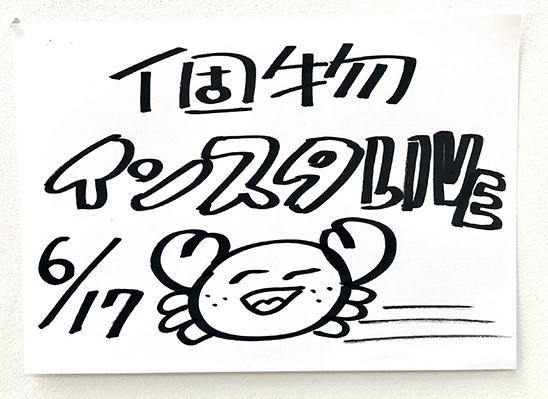 個物
インスタLIVE
6/17